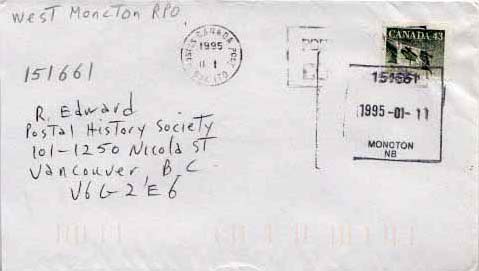 West Moncton RPO
1995
CANADA 43
151661
151661
1995-01-11
MONCTON
NB
R. Edward
Postal History Society
101-1250 Nicola ST
Vancouver, B.C.
V6G-2E6